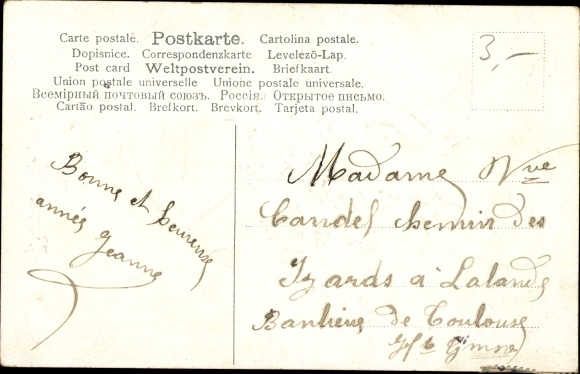 Carte postale. Postkarte. Cartolina postale.
Dopisnice. Correspondenzkarte Levelező-Lap.
Post card Weltpostverein. Briefkaart.
Union postale universelle Unione postale universale.
Всемірный почтовый союзъ. Россія. Открытое письмо.
Cartão postal. Brefkort. Brevkort. Tarjeta postal.
3,-
Bonne et heureuse
année
Jeanne
Madame Vve
Candel chemin des
Izards a Lalande
Banlieue de Toulouse
Hte